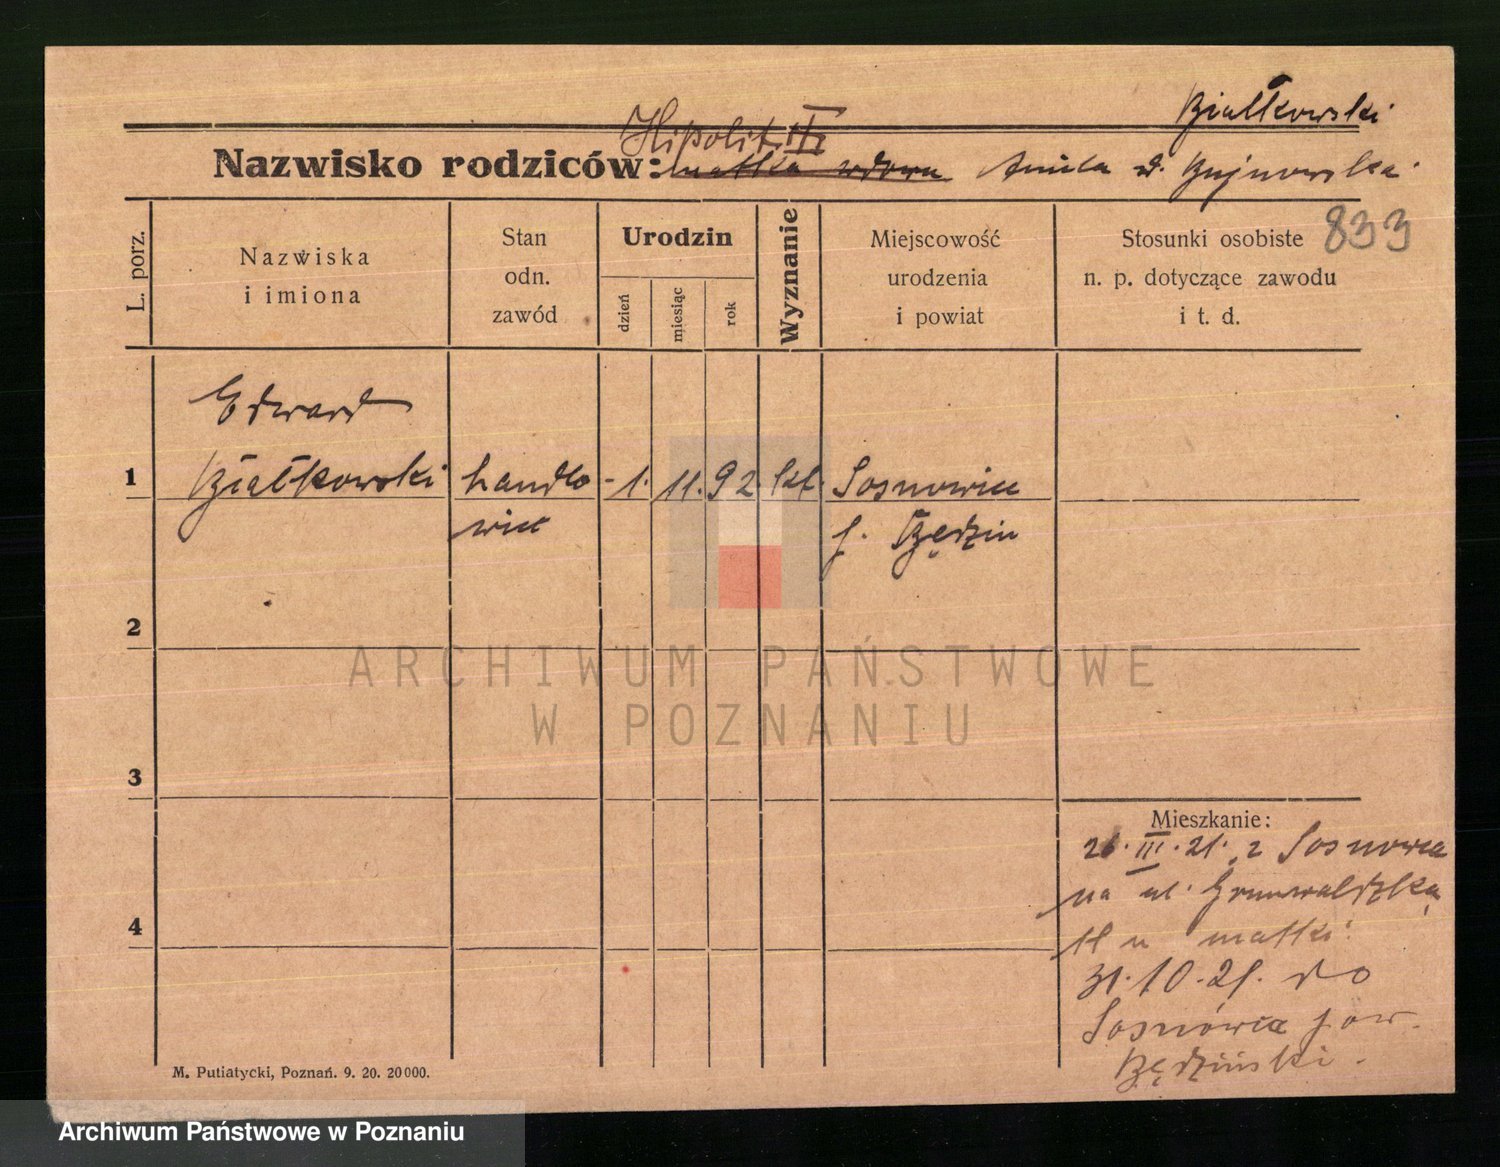 Białkowski
Hipolit
Nazwisko rodziców: matka wdowa Aniela d. Bujnowska
833
L. porz.
Nazwiska
i imiona
Stan
odn.
zawód
Urodzin
dzień
miesiąc
rok
Wyznanie
Miejscowość
urodzenia
i powiat
Stosunki osobiste
n. p. dotyczące zawodu
i t. d.
Edward
1 Białkowski handlo- 1. 11. 92 kt. Sosnowiec
wiec p. Będzin
2
3
4
Mieszkanie:
26. III. 21. z Sosnowca
na ul. Grunwaldzką
11 u matki.
31.10.21. do
Sosnówiec pow.
Będziński.
M. Putiatycki, Poznań. 9. 20. 20000.
ARCHIWUM PAŃSTWOWE
W POZNANIU
Archiwum Państwowe w Poznaniu